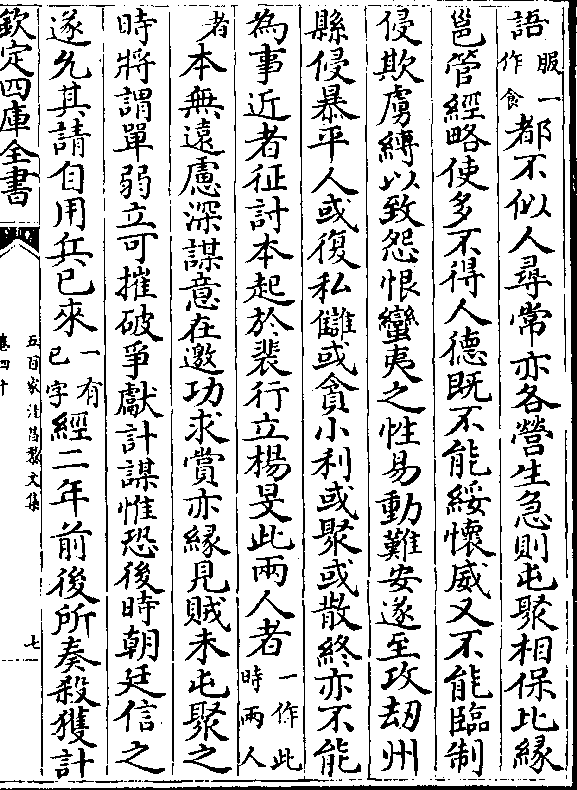 語服一作食都不似人尋常亦各營生急則屯聚相保比緣
邕管經略使多不得人德既不能綏懷威又不能臨制
侵欺虜縛以致怨恨蠻夷之性易動難安遂至攻刼州
縣侵暴平人或復私讎或貪小利或聚或散終亦不能
為事近者征討本起於裴行立楊旻此兩人者一作此時兩人
者本無遠慮深謀意在邀功求賞亦緣見賊未屯聚之
時將謂單弱立可摧破爭獻計謀惟恐後時朝廷信之
遂允其請自用兵已來一有已字經二年前後所奏殺獲計
欽定四庫全書
五百家注昌黎文集
卷四十
七